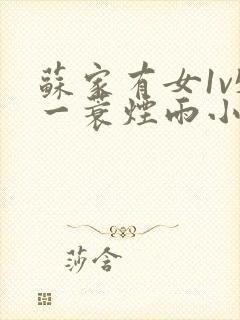 蘇家有女1v
一蓑煙雨小
莎含